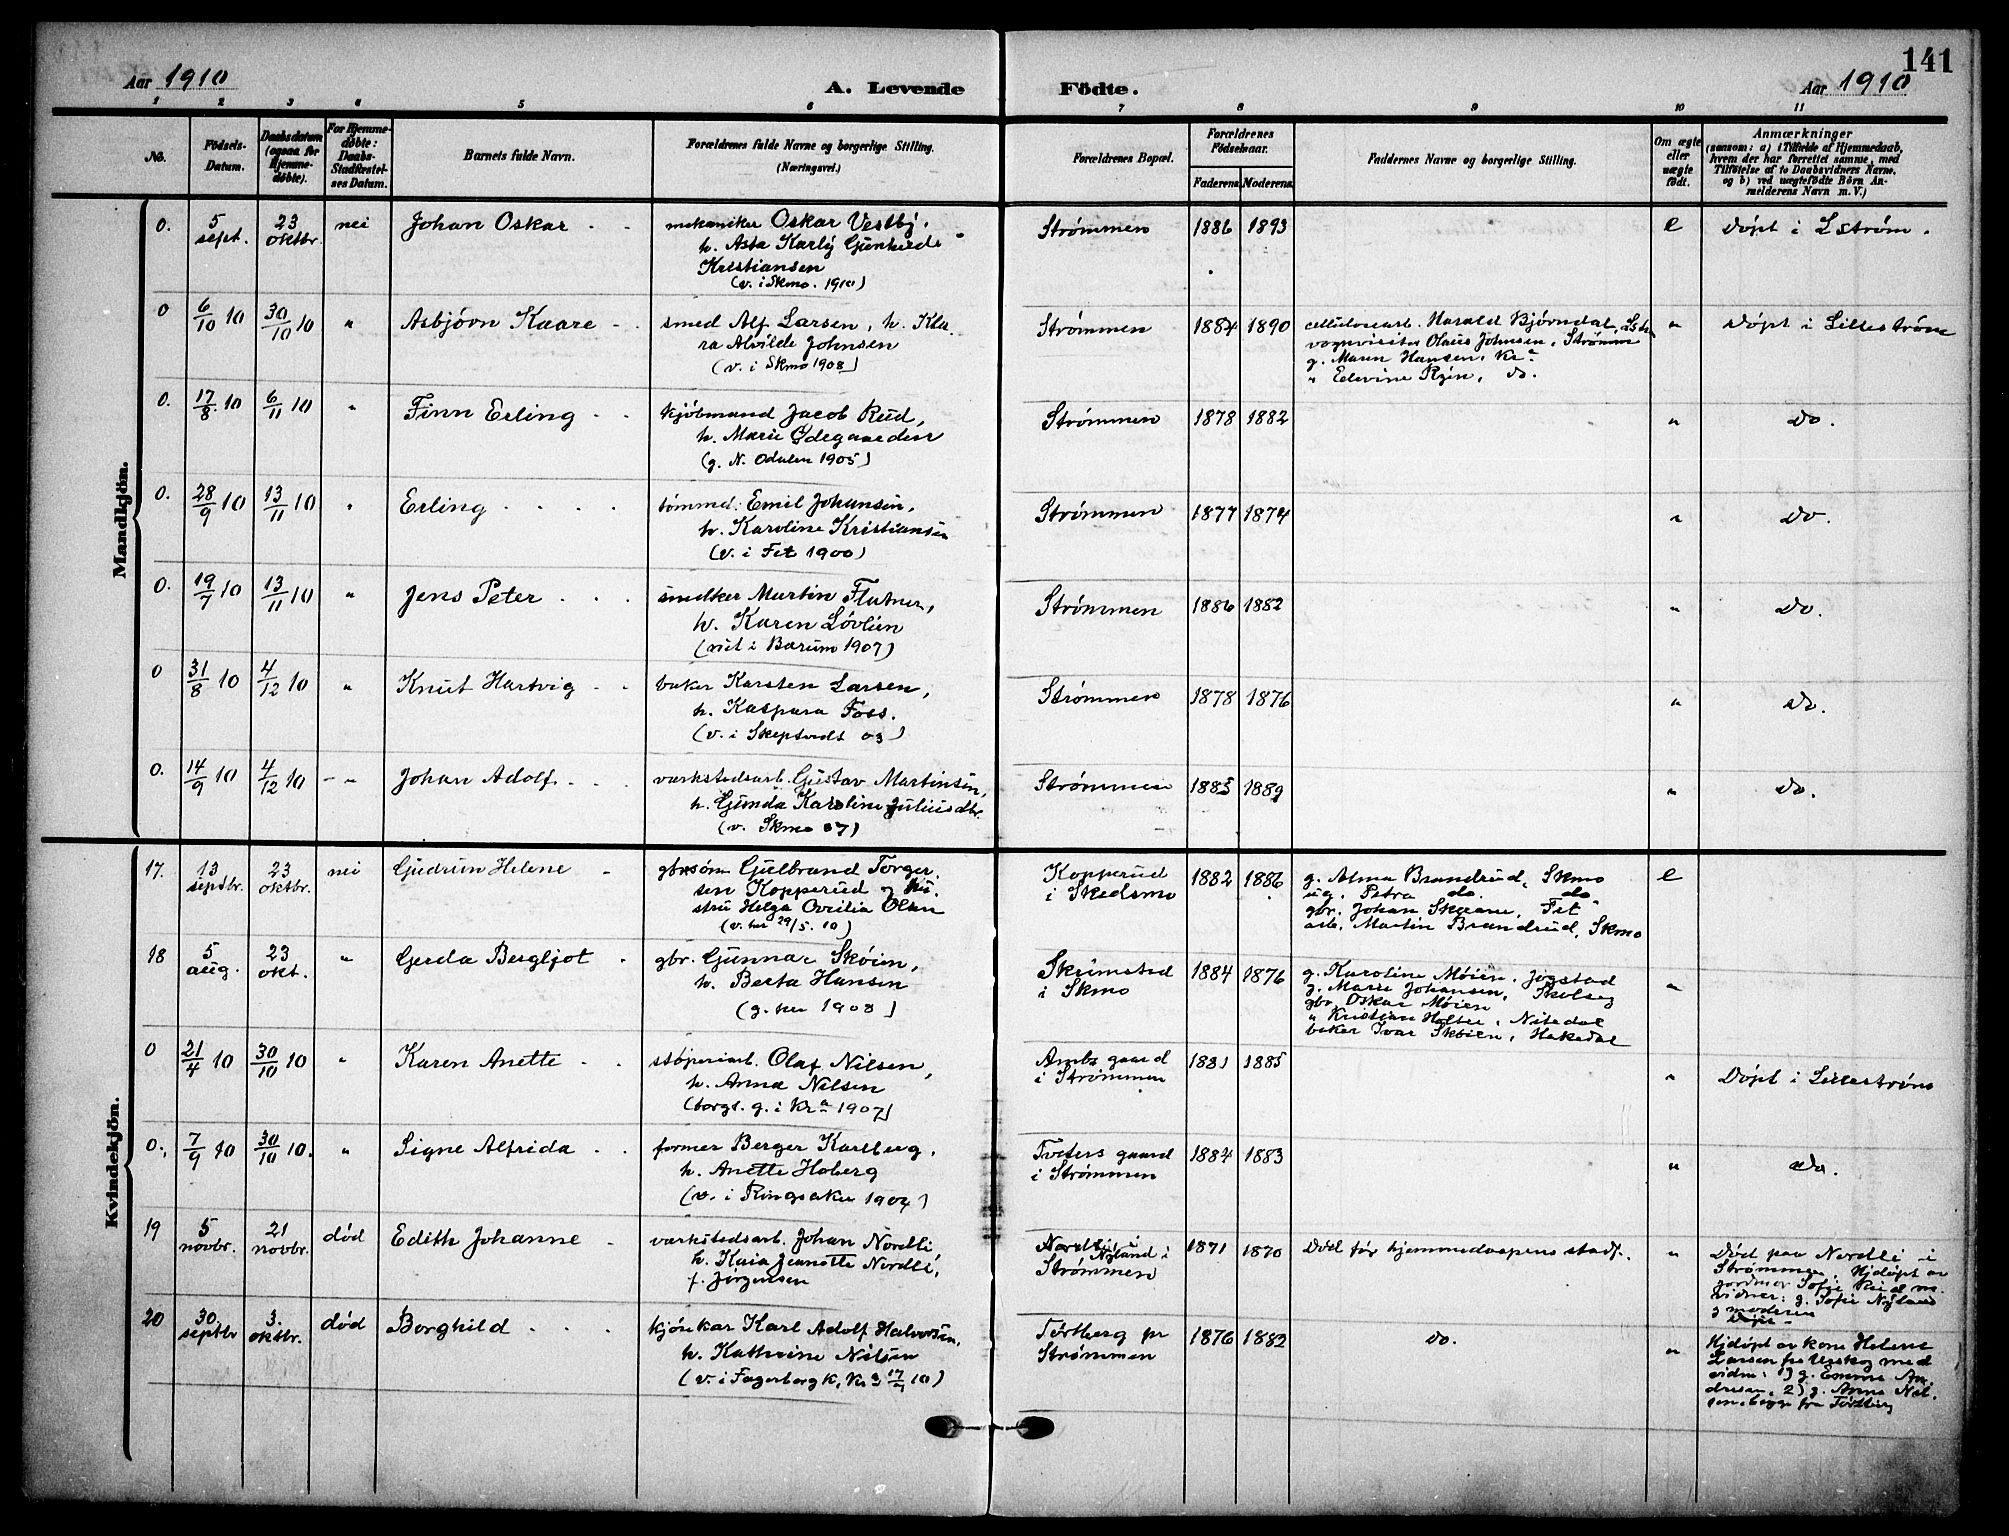 141
Aar 1910
A. Levende Födte.
Aar 1910
1 2 3 4 5 6 7 8 9 10 11
No.
Födsels-Datum.
Daabsdatum (ogsaa for Hjemme-döbte).
For Hjemme-döbte: Daabs-Stadfæstel-ses Datum.
Barnets fulde Navn.
Forældrenes fulde Navne og borgerlige Stilling.
(Næringsvei.)
Forældrenes Bopæl.
Forældrenes Födselsaar.
Faderens. Moderens.
Faddernes Navne og borgerlige Stilling.
Om ægte eller uægte födt.
Anmærkninger
(saasom: a) i Tilfælde af Hjemmedaab,
hvem der har forrettet samme, med
Tilföielse af to Daabsvidners Navne,
og b) ved uægtefödte Börn An-
melderens Navn m. V.)
Mandkjön.
0. 5 sept. 23 oktbr. nei Johan Oskar
mekaniker Oskar Vestby.
h. Asta Karly
Kristiansen
(v. i Skmo. 1910)
Strømmen 1886 1893 e Døpt i Lstrøm.
0 6/10 10 30/10 10 " Asbjørn Kaare
smed Alf Larsen, h. Kla-
ra Alvilde Johnsen
(v. i Skmo 1908)
Strømmen 1884 1890
cellulosearb. Harald Bjørndal, Lstr
Olaus Johnsen, Strømm
g. Maren Hansen, Kra
" do.
" Døpt i Lillestrøm
0. 17/8 10 6/11 10 " Finn Erling
kjøbmand Jacob Rud,
h. Marie Ødegaarden
(g. N. Odalen 1905)
Strømmen 1878 1882 " Do.
0. 28/9 10 13/11 10 " Erling
tømmd: Emil Johansen,
h. Karoline Kristiansen
(v. i Fet 1900)
Strømmen 1877 1874 " Do.
0. 19/7 10 13/11 10 " Jens Peter
snedker Martin Flatner,
h. Karen Løvlien
(viet i Bærum 1907)
Strømmen 1886 1882 " Do.
0 31/8 10 4/12 10 " Knut Hartvig
baker Karsten Larsen,
h. Kaspara Foss.
(v. i Skeptvedt 03)
Strømmen 1878 1876 " Do.
0. 14/9 10 4/12 10 " Johan Adolf
værkstedsarb. Gustav Martinsen,
h. Gunda Karoline Juliusdtr.
(v. Skmo 07)
Strømmen 1885 1889 " Do.
Kvindekjön.
17. 13 septbr. 23 oktbr. nei Gudrun Helene
gbrsøn Gulbrand Torger-
sen Kopperud og hu-
stru Helga Ovidia Olsen
(v. her 29/5. 10)
Kopperud
i Skedsmo
1882 1886
g. Alma Brandrud, Skmo
ug. Petra do. do.
gbr. Johan Skjeane, Fet
arb. Martin Brandrud, Skmo
e
18 5 aug. 23 okt. " Gerda Bergljot
gbr. Gunnar Skøien,
h. Berta Hansen
(g. her 1908)
Skrimstad
i Skmo
1884 1876
g. Karoline Møien, Jogstad
g. Marie Johansen,
gbr. Oskar Møien
" Kristian Holter, Nitedal
baker Ivar Skøien, Hakedal
"
0 21/4 10 30/10 10 " Karen Anette
støperiarb. Olaf Nilsen,
h. Anna Nilsen
(borgl. g. i Kra 1907)
gaard
i Strømmen
1881 1885 " Døpt i Lillestrøm
0. 7/9 10 30/10 10. " Signe Alfrida
former Berger Karlberg,
h. Anette Hoberg
(v. i Ringsaker 1904)
Tveters gaard
i Strømmen
1884 1883 " Do.
19 5 novbr. 21 novbr. død Edith Johanne
værkstedsarb. Johan Nordli,
h. Kaia Jeanette Nordli,
f. Jørgensen
Nordli i
Nyland i
Strømmen
1871 1870 Død før hjemmedaapens stadf.
" Død paa Nordli i
Strømmen. Hjdøpt av
jordmor Sofie Rud m.
vidner: g. Sofie Nyland
g moderen
20 30 septbr 3. oktbr. død Borghild
kjørekar Karl Adolf Halvorsen,
h. Kathrine Nilsen
(v. i Fagerborg k, Kra 17/ 10)
Tørtberg pr
Strømmen
1876 1882 do.
" Hjdøpt av kone Helene
Larsen fra Urskog med
vidn: 1) g. Emma An-
dresen, 2) g. Anna Nil-
sen, begge fra Tørtberg